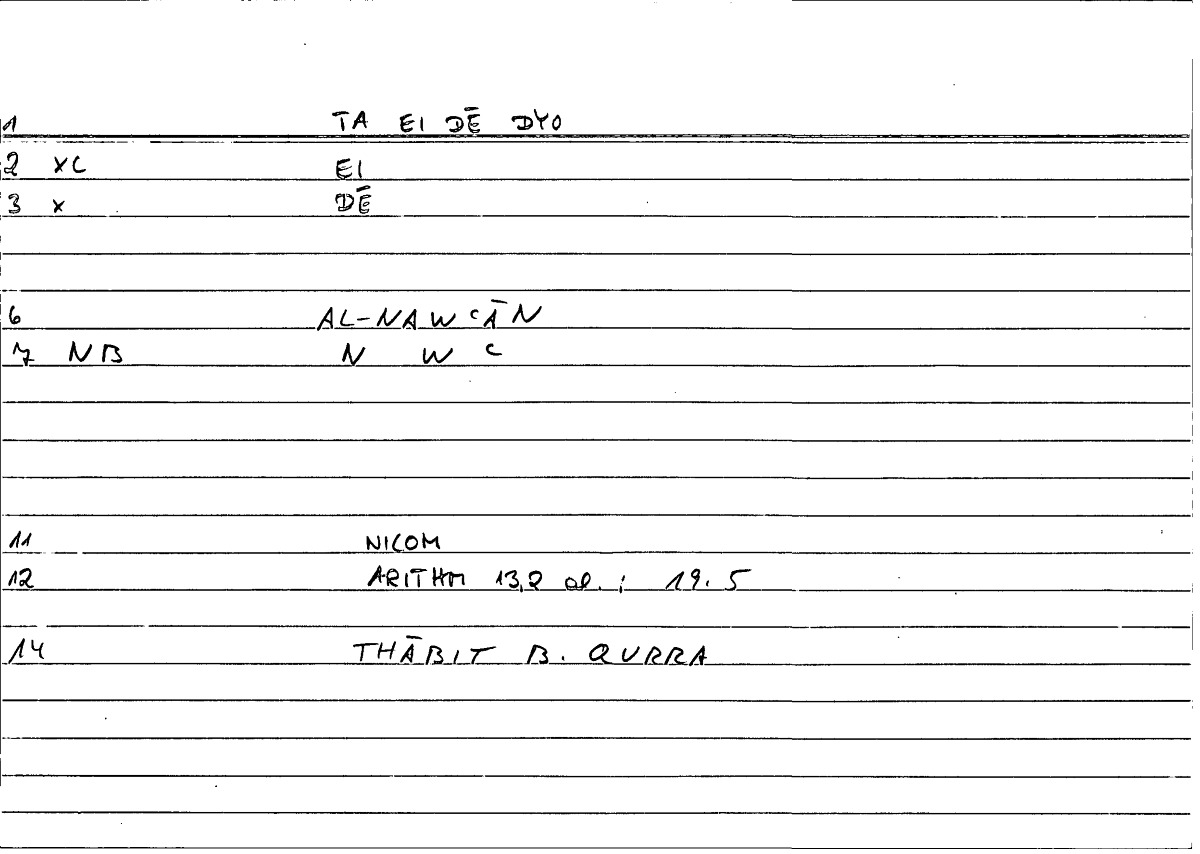 1 TA EI DĒ DYO
2 XC EI
3 X DĒ
6 AL-NAWCĀN
7 NB N W C
11 NICOM
12 ARITHM 13,2 al. ; 19. 5
14 THĀBIT B. QURRA